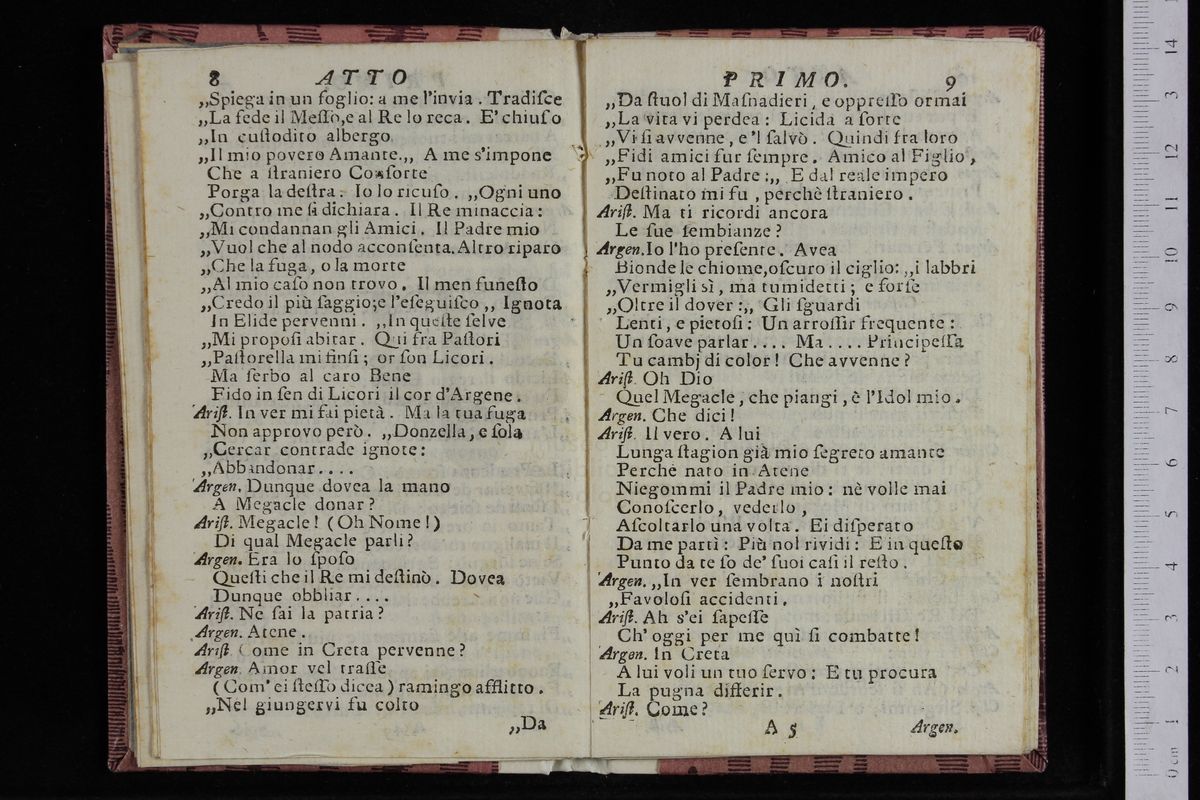 8 ATTO
„Spiega in un foglio: a me l'invia . Tradiſce
„La fede il Meſſo,e al Re lo reca . E' chiuſo
„In cuſtodito albergo
„Il mio povero Amante.„ A me s'impone
Che a ſtraniero Conſorte
Porga la deſtra . Io lo ricuſo . „Ogni uno
„Contro me ſi dichiara . Il Re minaccia :
„Mi condannan gli Amici . Il Padre mio
„Vuol che al nodo acconſenta. Altro riparo
„Che la fuga , o la morte
„Al mio caſo non trovo . Il men funeſto
„Credo il più ſaggio;e l'eſeguiſco „ Ignota
In Elide pervenni . „In queſte ſelve
„Mi propoſi abitar . Qui fra Paſtori
„Paſtorella mi finſi ; or ſon Licori .
Ma ſerbo al caro Bene
Fido in ſen di Licori il cor d'Argene .
Ariſt. In ver mi fai pietà . Ma la tua fuga
Non approvo però . „Donzella , e ſola
„Cercar contrade ignote :
„Abbandonar . . . .
Argen. Dunque dovea la mano
A Megacle donar ?
Ariſt. Megacle ! ( Oh Nome ! )
Di qual Megacle parli ?
Argen. Era lo ſpoſo
Queſti che il Re mi deſtinò . Dovea
Dunque obbliar . . . .
Ariſt. Ne ſai la patria ?
Argen. Atene .
Ariſt. Come in Creta pervenne ?
Argen. Amor vel traſſe
( Com' ei ſteſſo dicea ) ramingo afflitto .
„Nel giungervi fu colto
„Da
PRIMO. 9
„Da ſtuol di Maſnadieri , e oppreſſo ormai
„La vita vi perdea : Licida a ſorte
„Vi ſi avvenne , e 'l ſalvò . Quindi fra loro
„Fidi amici fur ſempre . Amico al Figlio ,
„Fu noto al Padre :„ E dal reale impero
Deſtinato mi fu , perchè ſtraniero .
Ariſt. Ma ti ricordi ancora
Le ſue ſembianze ?
Argen. Io l'ho preſente . Avea
Bionde le chiome,oſcuro il ciglio: „i labbri
„Vermigli sì , ma tumidetti ; e forſe
„Oltre il dover :„ Gli ſguardi
Lenti , e pietoſi : Un arroſſir frequente :
Un ſoave parlar . . . . Ma . . . . Principeſſa
Tu cambj di color ! Che avvenne ?
Ariſt. Oh Dio
Quel Megacle , che piangi , è l'Idol mio .
Argen. Che dici !
Ariſt. Il vero . A lui
Lunga ſtagion già mio ſegreto amante
Perchè nato in Atene
Niegommi il Padre mio : nè volle mai
Conoſcerlo , vederlo ,
Aſcoltarlo una volta . Ei diſperato
Da me partì : Più nol rividi : E in queſto
Punto da te ſo de' ſuoi caſi il reſto .
Argen. „In ver ſembrano i noſtri
„Favoloſi accidenti .
Ariſt. Ah s'ei ſapeſſe
Ch' oggi per me quì ſi combatte !
Argen. In Creta
A lui voli un tuo ſervo : E tu procura
La pugna differir .
Ariſt. Come ?
A 5 Argen.